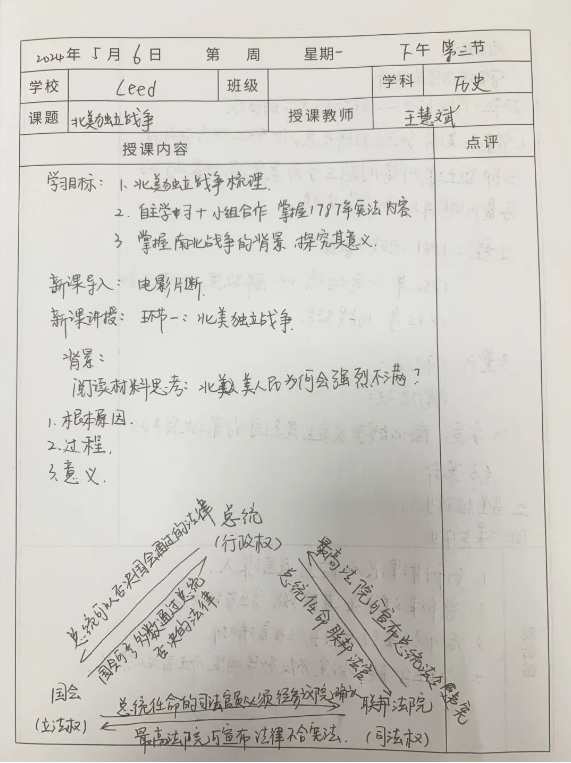 2024年 5月 6日 第 周 星期一 下午 第三节
学校 Leed 班级 学科 历史
课题 北美独立战争 授课教师 王慧斌
授课内容 点评
学习目标: 1. 北美独立战争梳理.
2. 自主学习+小组合作 掌握1787年宪法内容
3. 掌握南北战争的背景,探究其意义.
新课导入: 电影片断.
新课讲授: 环节一: 北美独立战争.
背景:
阅读材料思考: 北美人民为何会强烈不满?
1. 根本原因.
2. 过程.
3. 意义.
总统
(行政权)
总统可以否决国会通过的法律
国会可多数通过总统
否决的法律
最高法院可宣布总统法令
总统任命联邦法官
国会
(立法权)
总统任命的司法官员必须经参议院
最高法院可宣布法律不合宪法.
联邦法院
(司法权)